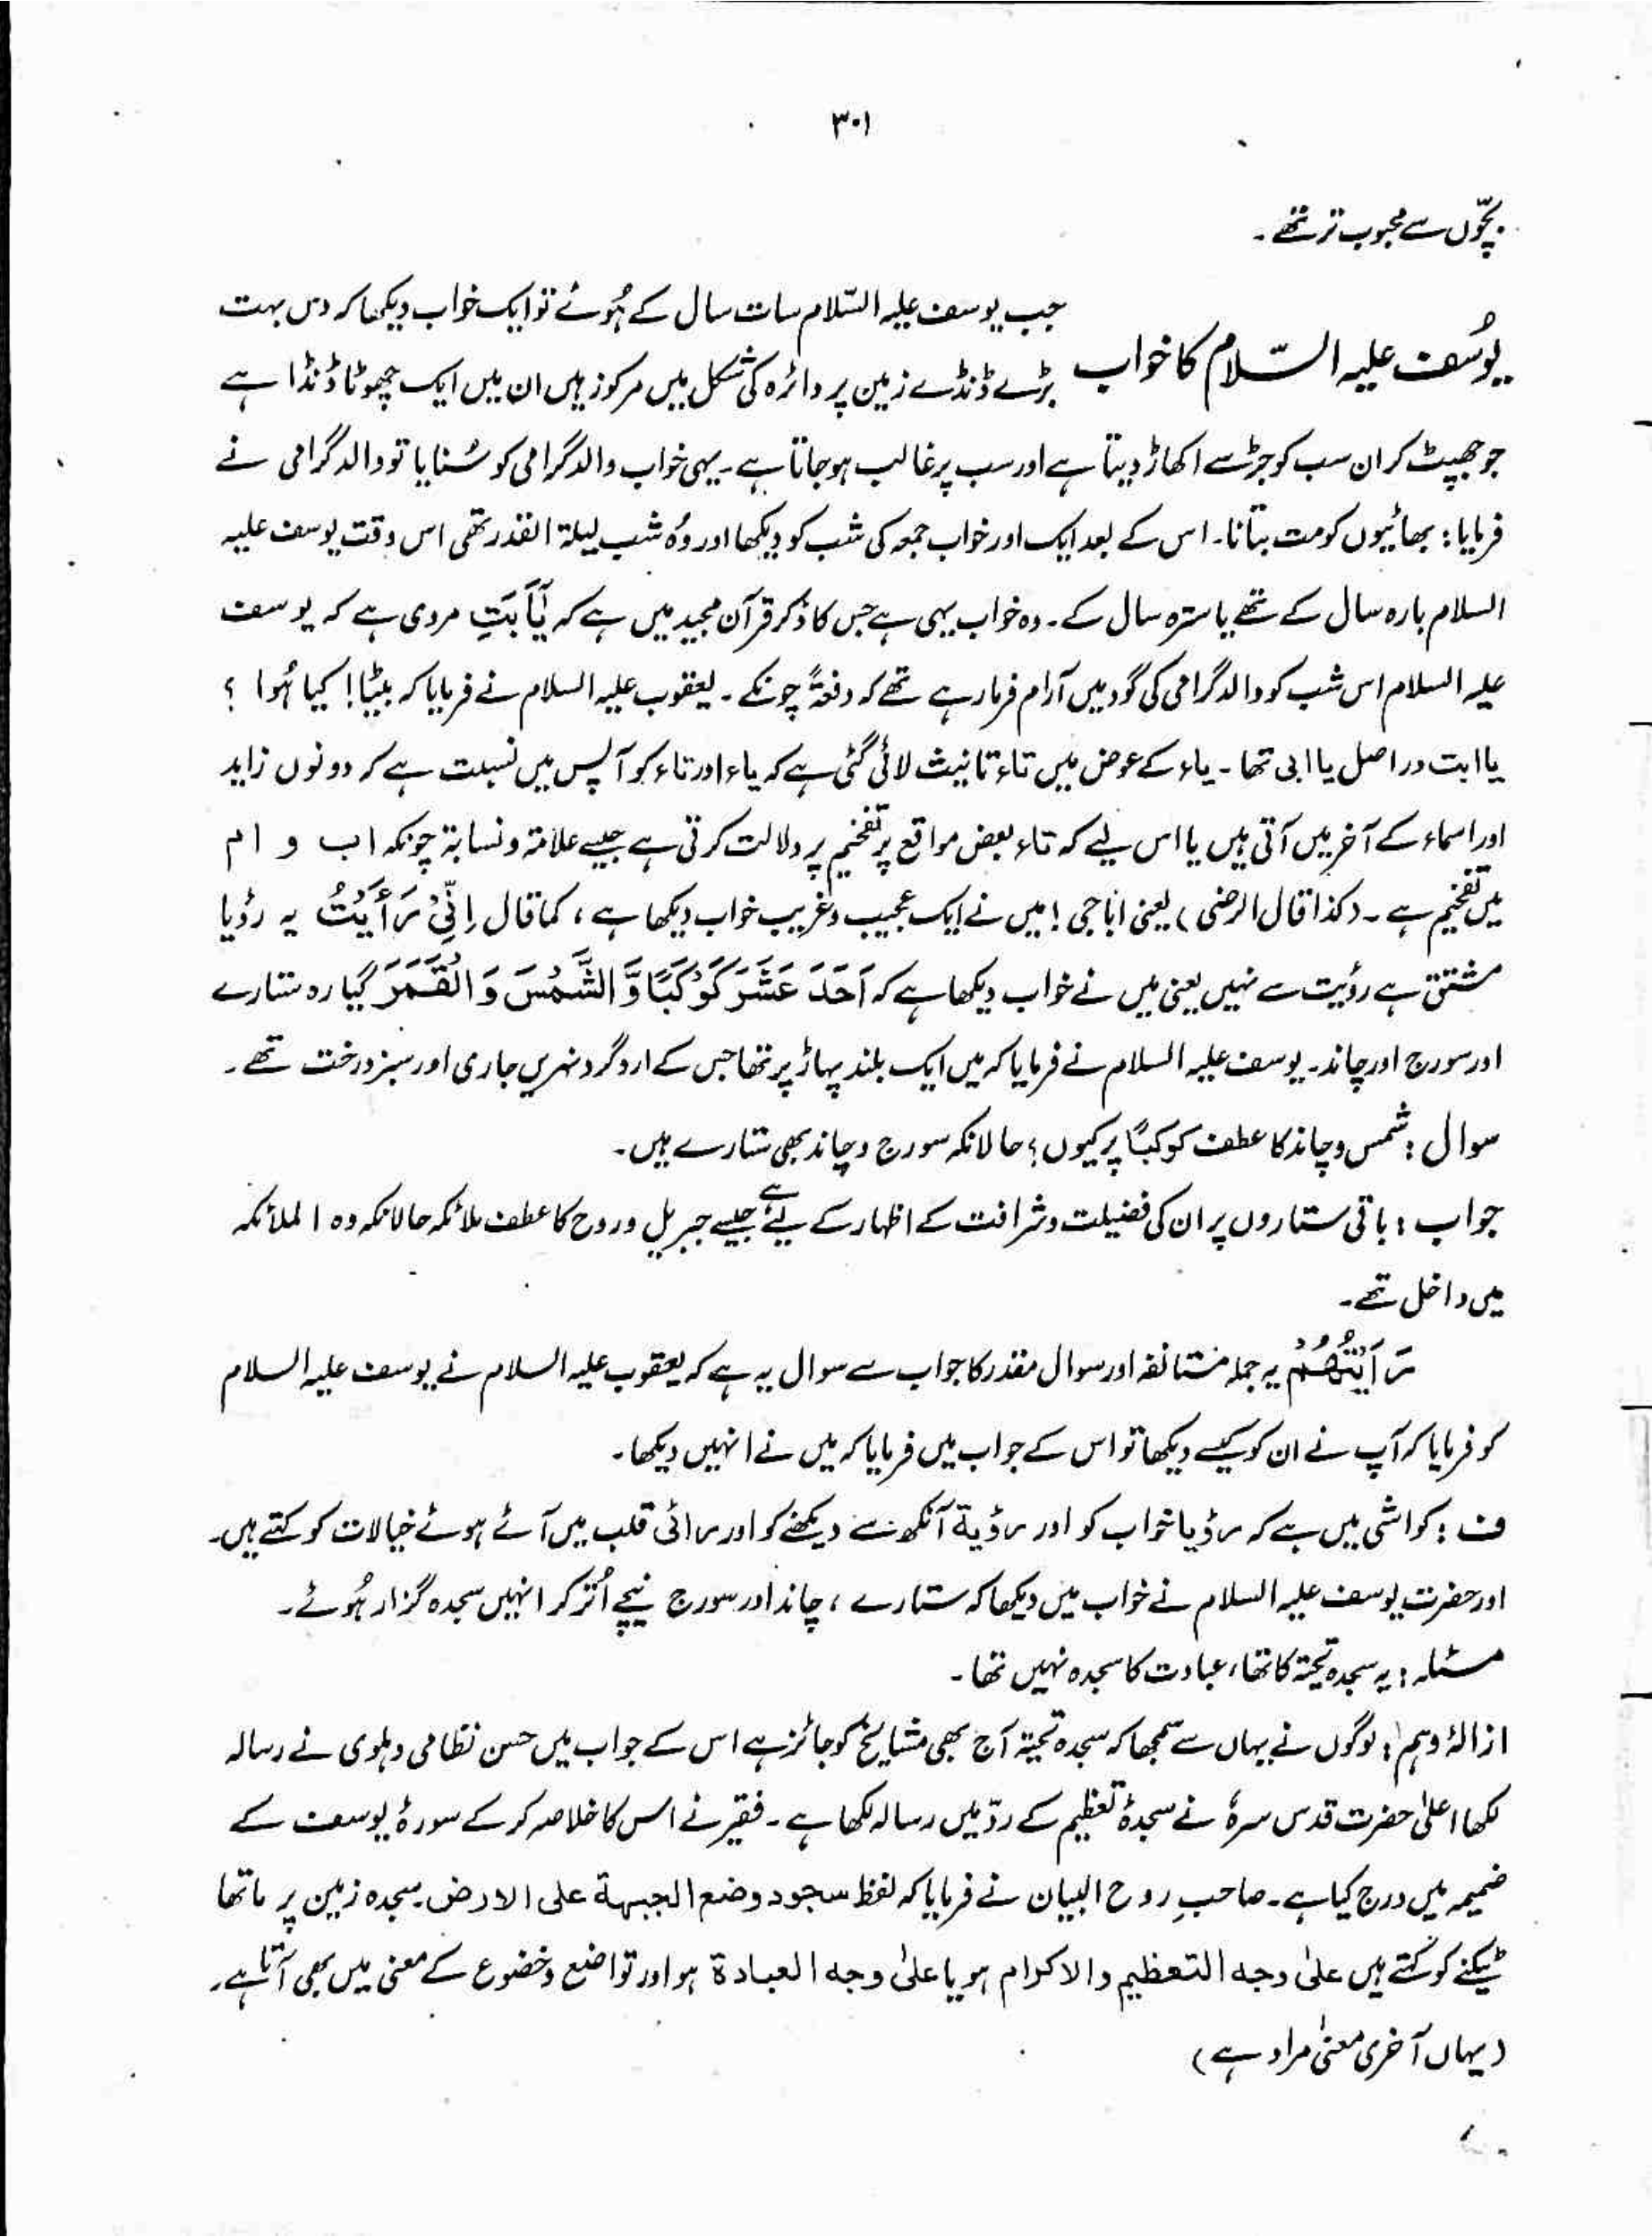 ۳۰۱
بچّوں سے محبوب تر تھے۔
یُوسُف علیہ السّلام کا خواب
جب یوسف علیہ السّلام سات سال کے ہُوئے تو ایک خواب دیکھا کہ دس بہت
بڑے ڈنڈے زمین پر دائرہ کی شکل میں مرکوز ہیں ان میں ایک چھوٹا ڈنڈا ہے
جو جھپٹ کر ان سب کو جڑ سے اکھاڑ دیتا ہے اور سب پر غالب ہو جاتا ہے۔ یہی خواب والد گرامی کو سُنایا تو والد گرامی نے
فرمایا: بھائیوں کو مت بتانا۔ اس کے بعد ایک اور خواب جمعہ کی شب کو دیکھا اور وُہ شب لیلۃ القدر تھی اس وقت یوسف علیہ
السلام بارہ سال کے تھے یا سترہ سال کے۔ وہ خواب یہی ہے جس کا ذکر قرآن مجید میں ہے کہ یٰٓاَبَتِ مروی ہے کہ یوسف
علیہ السلام اس شب کو والد گرامی کی گود میں آرام فرما رہے تھے کہ دفعۃً چونکے۔ یعقوب علیہ السلام نے فرمایا کہ بیٹا! کیا ہُوا ؟
یا ابت دراصل یا ابی تھا۔ یاء کے عوض میں تاء تانیث لائی گئی ہے کہ یاء اور تاء کو آپس میں نسبت ہے کہ دونوں زاید
اور اسماء کے آخر میں آتی ہیں یا اس لیے کہ تاء بعض مواقع پر تفخیم پر دلالت کرتی ہے جیسے علامۃ و نسابۃ چونکہ اب و ام
میں تفخیم ہے۔ (کذا قال الرضی) یعنی ابّا جی ! میں نے ایک عجیب و غریب خواب دیکھا ہے، کما قال اِنِّیْ رَاَیْتُ یہ رؤیا
مشتق ہے رؤیت سے نہیں یعنی میں نے خواب دیکھا ہے کہ اَحَدَ عَشَرَ کَوْکَبًا وَّ الشَّمْسَ وَ الْقَمَرَ گیارہ ستارے
اور سورج اور چاند۔ یوسف علیہ السلام نے فرمایا کہ میں ایک بلند پہاڑ پر تھا جس کے اردگرد نہریں جاری اور سبز درخت تھے۔
سوال : شمس و چاند کا عطف کوکبًا پر کیوں؟ حالانکہ سورج و چاند بھی ستارے ہیں۔
جواب : باقی ستاروں پر ان کی فضیلت و شرافت کے اظہار کے لیے ہے جیسے جبریل و روح کا عطف ملائکہ حالانکہ وہ الملائکہ
میں داخل تھے۔
رَاَیْتُھُمْ یہ جملہ مستانفہ اور سوال مقدر کا جواب سے سوال یہ ہے کہ یعقوب علیہ السلام نے یوسف علیہ السلام
کو فرمایا کہ آپ نے ان کو کیسے دیکھا تو اس کے جواب میں فرمایا کہ میں نے انہیں دیکھا۔
ف : کواشی میں ہے کہ رؤیا خواب کو اور رؤیۃ آنکھ سے دیکھنے کو اور رائی قلب میں آئے ہوئے خیالات کو کہتے ہیں۔
اور حضرت یوسف علیہ السلام نے خواب میں دیکھا کہ ستارے ، چاند اور سورج نیچے اُتر کر انہیں سجدہ گزار ہُوئے۔
مسئلہ : یہ سجدہ تحیۃ کا تھا، عبادت کا سجدہ نہیں تھا۔
ازالۂ وہم : لوگوں نے یہاں سے سمجھا کہ سجدہ تحیۃ آج بھی مشایخ کو جائز ہے اس کے جواب میں حسن نظامی دہلوی نے رسالہ
لکھا اعلیٰ حضرت قدس سرہٗ نے سجدۂ تعظیم کے ردّ میں رسالہ لکھا ہے۔ فقیر نے اس کا خلاصہ کر کے سورۂ یوسف کے
ضمیمہ میں درج کیا ہے۔ صاحبِ روح البیان نے فرمایا کہ لفظ سجود وضع الجبھۃ علی الارض۔ سجدہ زمین پر ماتھا
ٹیکنے کو کہتے ہیں علیٰ وجہ التعظیم والاکرام ہو یا علیٰ وجہ العبادۃ ہو اور تواضع و خضوع کے معنی میں بھی آتا ہے۔
(یہاں آخری معنیٰ مراد ہے)